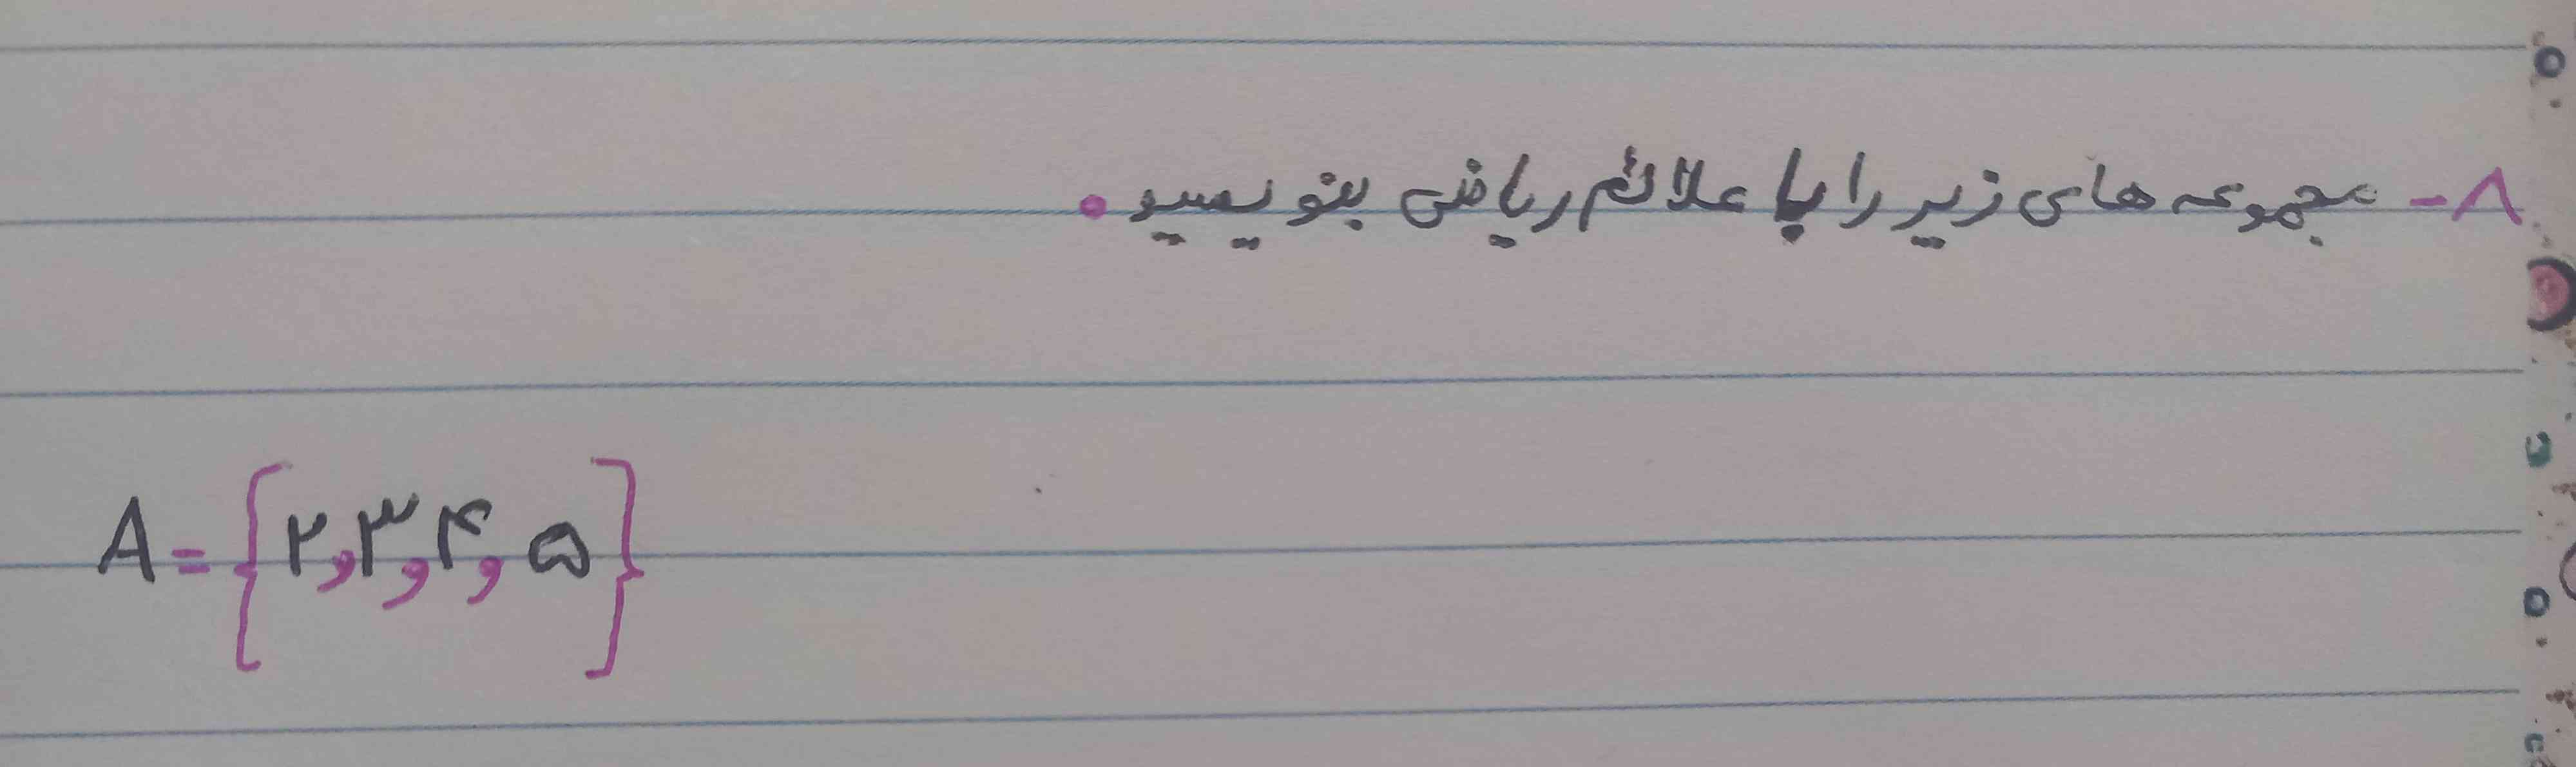 ۸- مجموعه های زیر را با علائم ریاضی بنویسید.
A = {۲, ۳, ۴, ۵}